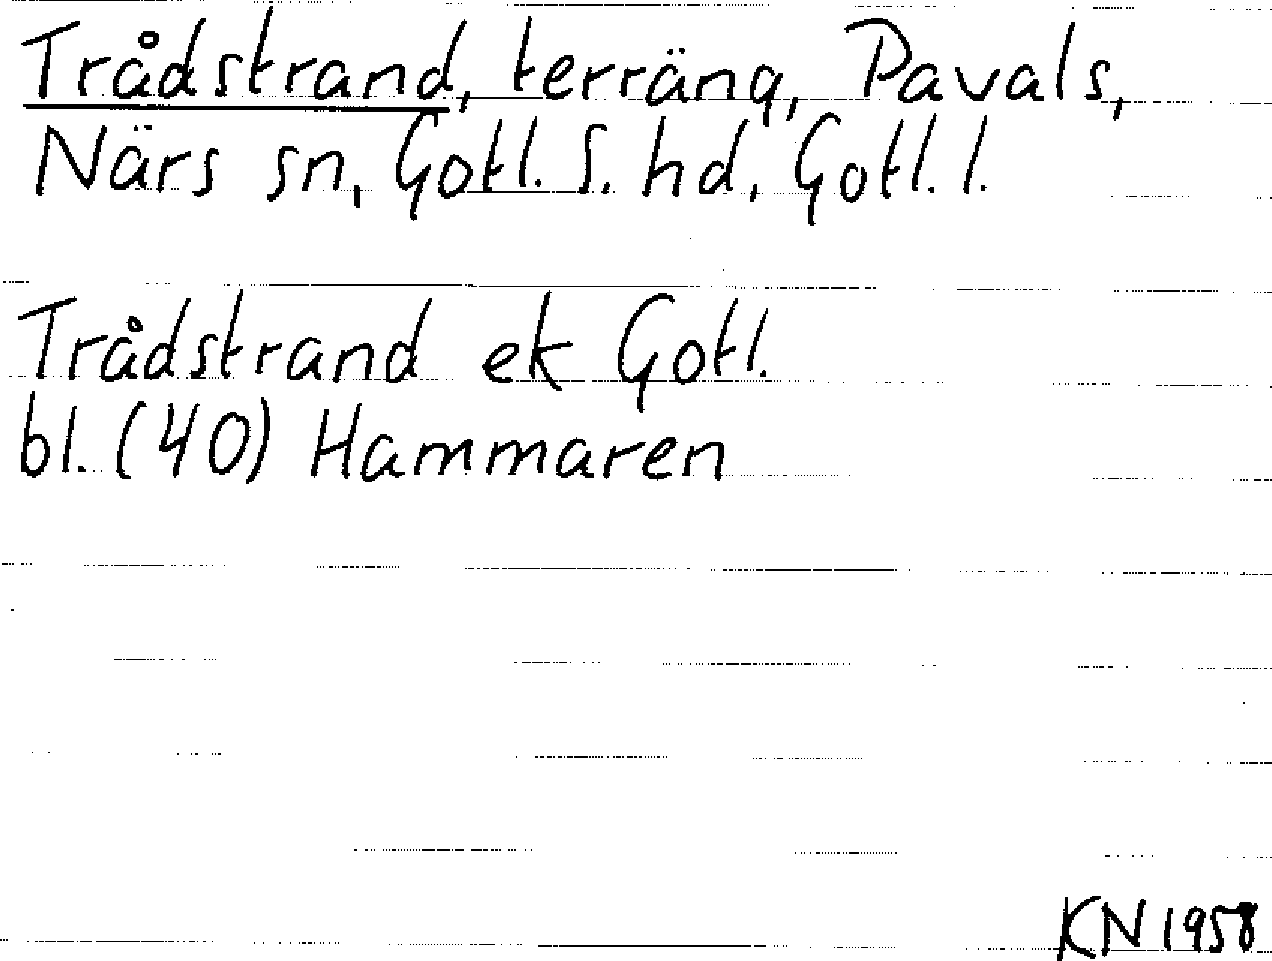 Trådstrand, terräng, Pavals,
Närs sn, Gotl. S. hd, Gotl. l.
Trådstrand ek Gotl.
bl. (40) Hammaren
KN 1958